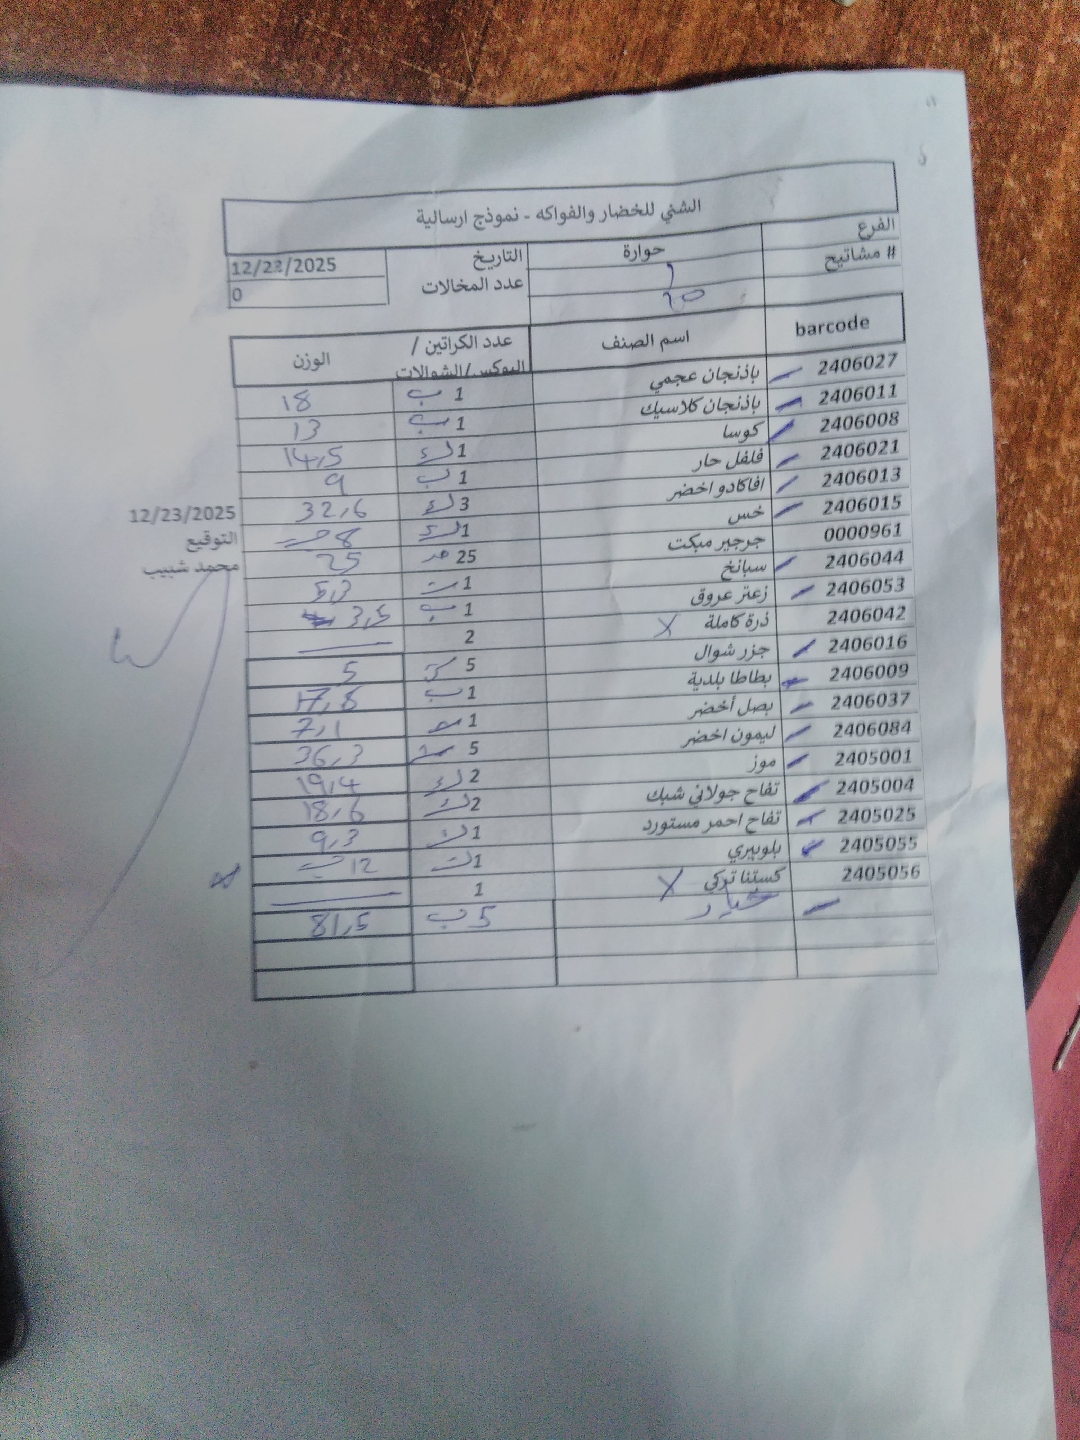 الشني للخضار والفواكه - نموذج ارسالية
الفرع حوارة التاريخ 12/22/2025
# مشاتيح عدد المخالات 0
barcode اسم الصنف عدد الكراتين / البوكس/الشوالات الوزن
2406027 باذنجان عجمي 1 ب 18
2406011 باذنجان كلاسيك 1 ب 13
2406008 كوسا 1 ك 14,5
2406021 فلفل حار 1 ب 9
2406013 افاكادو اخضر 3 ك 32,6
2406015 خس 1 ك 8
0000961 جرجير مبكت 25 25
2406044 سبانخ 1 5,3
2406053 زعتر عروق 1 ب 3,5
2406042 ذرة كاملة X 2
2406016 جزر شوال 5 5
2406009 بطاطا بلدية 1 ب 17,8
2406037 بصل أخضر 1 7,1
2406084 ليمون اخضر 5 36,3
2405001 موز 2 ك 19,4
2405004 تفاح جولاني شبك 2 ك 18,6
2405025 تفاح احمر مستورد 1 ك 9,3
2405055 بلوبيري 1 12
2405056 كستنا تركي X 1
خيار 5 ب 81,5
12/23/2025
التوقيع
محمد شبيب